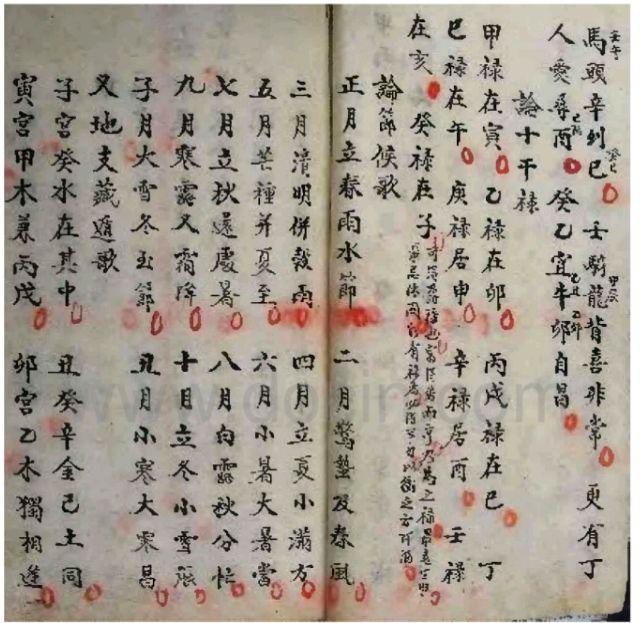 馬頭辛列巳 壬騎龍背喜非常 更有丁
人愛尋酉 癸乙宜牛卯自昌
論十干禄
甲禄在寅 乙禄在卯 丙戊禄在巳 丁
巳禄在午 庚禄居申 辛禄居酉 壬禄
在亥 癸禄在子
論節候歌
正月立春雨水節 二月驚蟄及春風
三月清明併穀雨 四月立夏小滿方
五月芒種并夏至 六月小暑大暑當
七月立秋還處暑 八月白露秋分忙
九月寒露又霜降 十月立冬小雪張
子月大雪冬玉節 丑月小寒大寒昌
又地支藏遁歌
子宮癸水在其中 丑癸辛金己土同
寅宮甲木兼丙戊 卯宮乙木獨相逢